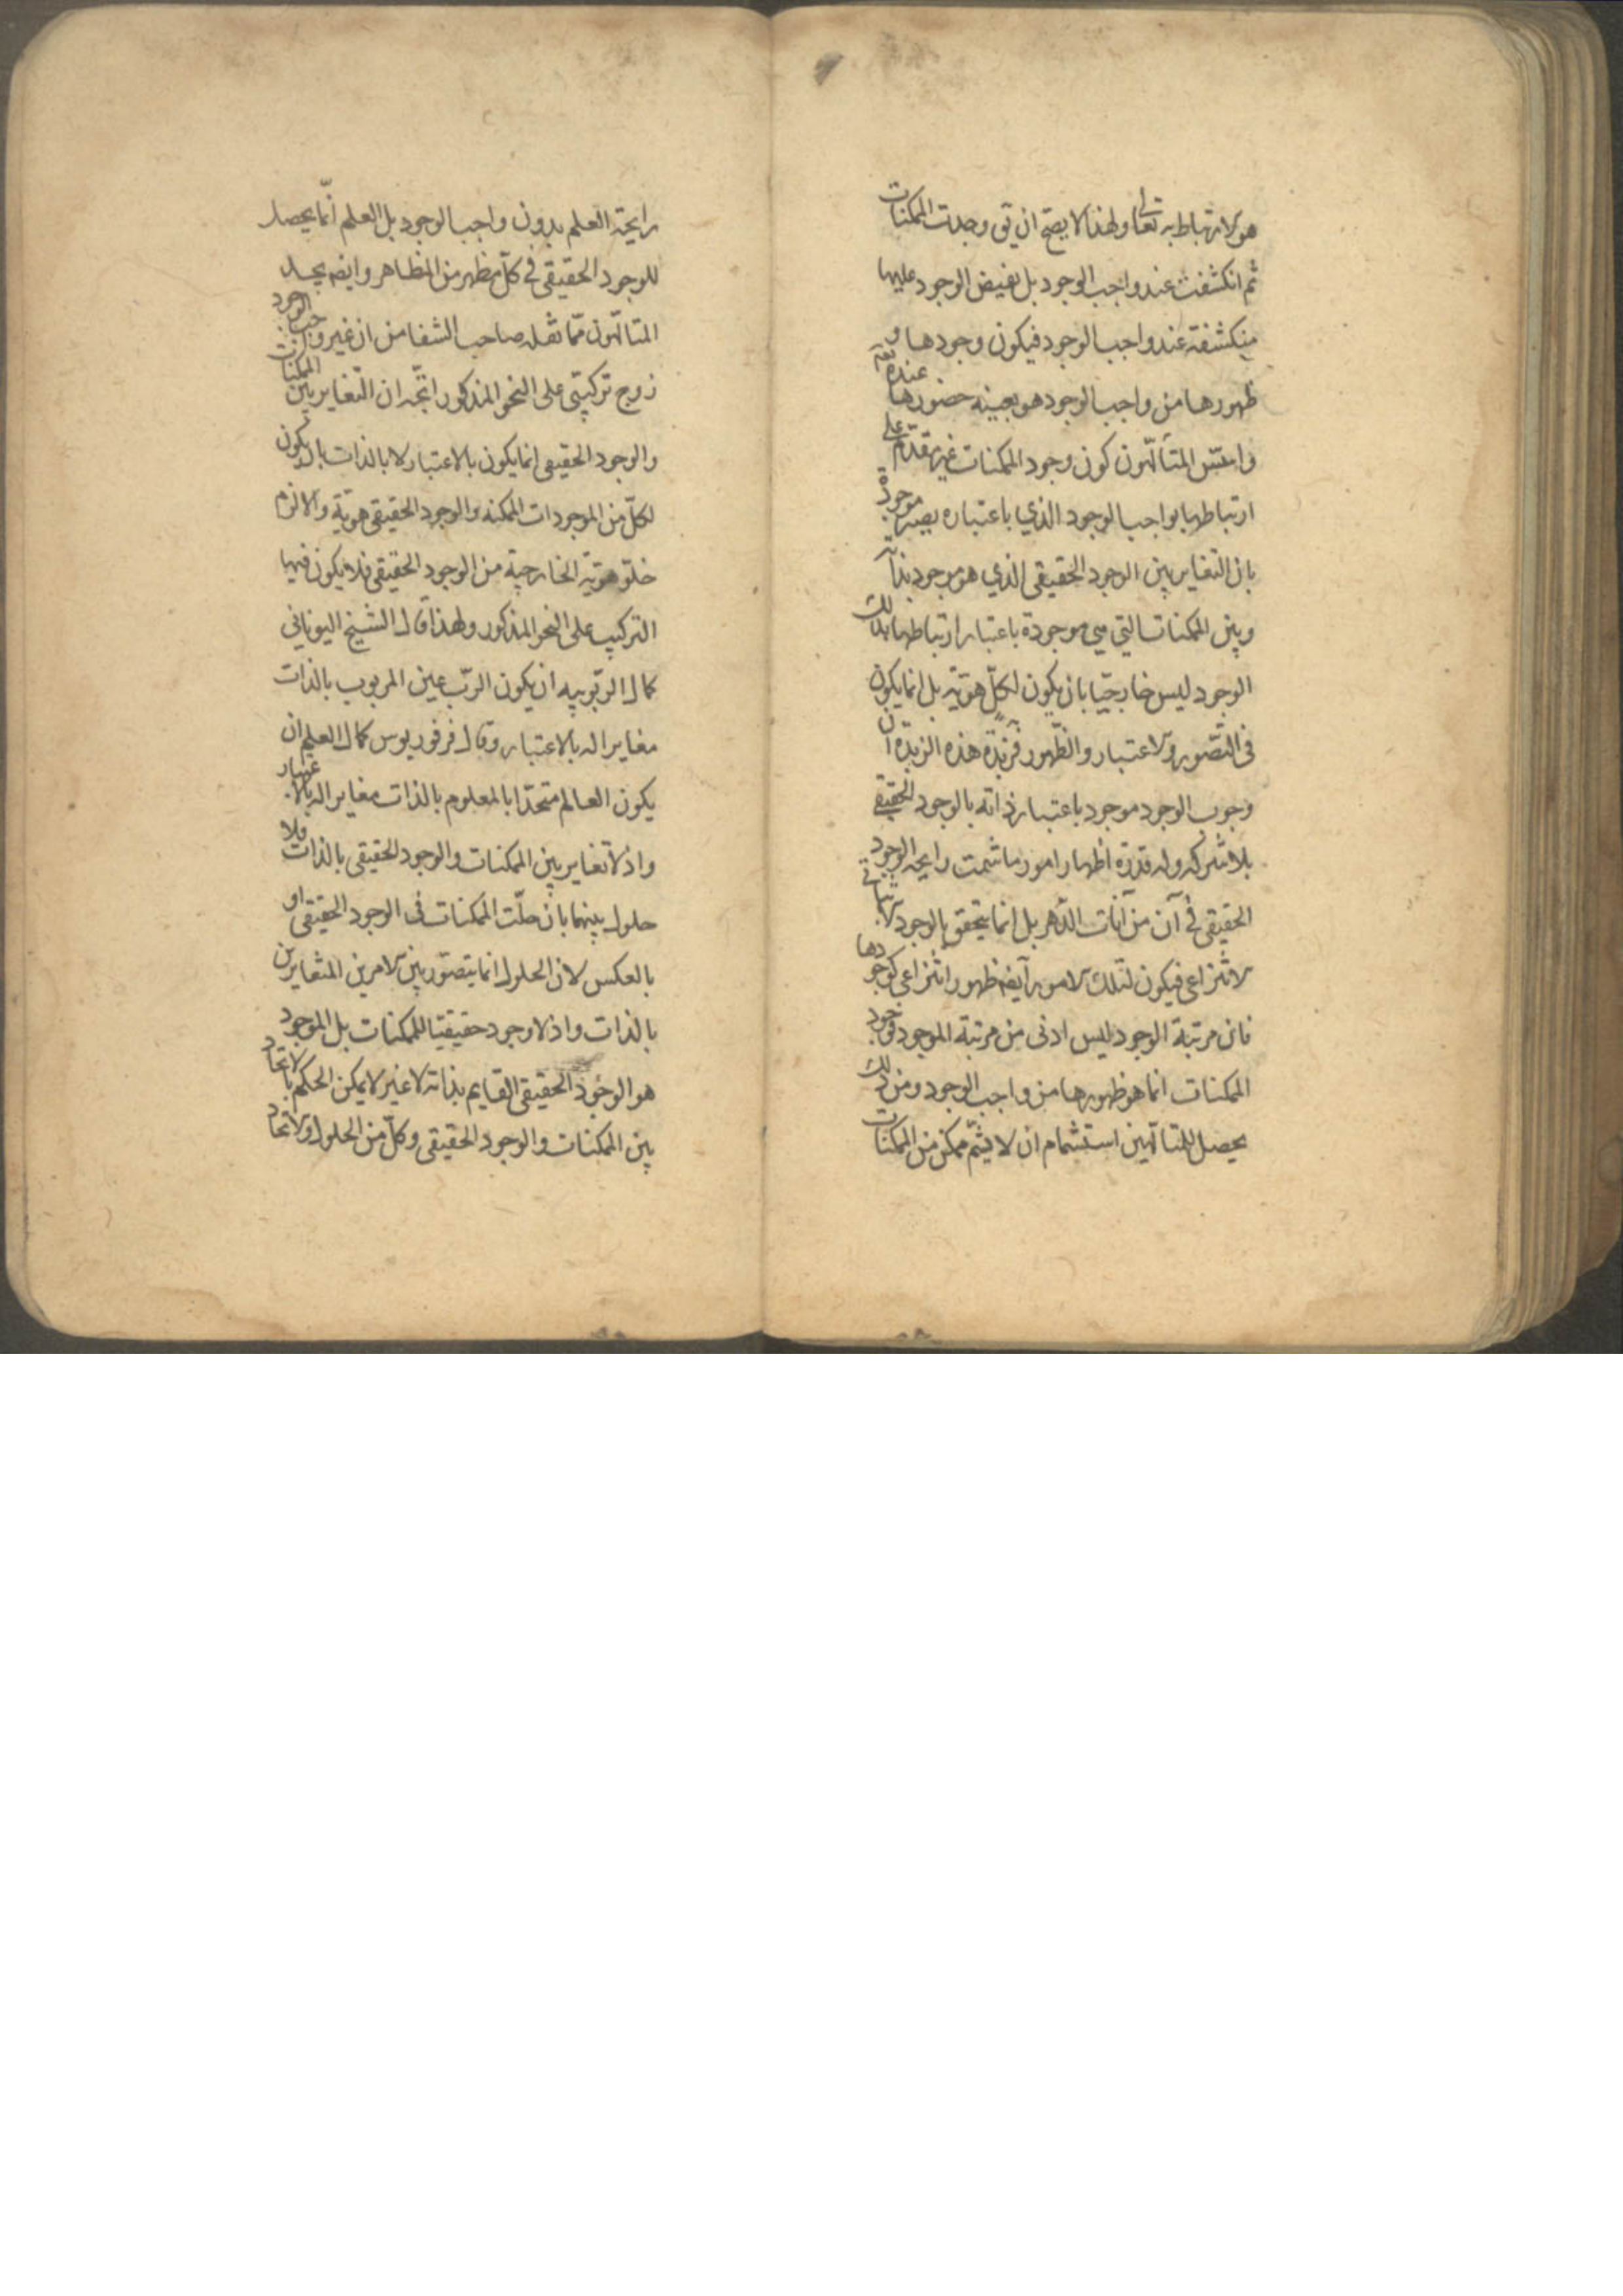 هو الارتباط به تعالى ولهذا لا يصحّ ان يق وجدت الممكنات
ثم انكشفت عند واجب الوجود بل نفيض الوجود عليها
منكشفة عند واجب الوجود فيكون وجودها و
ظهورها من واجب الوجود هو بعينه حضورها عنده
المتألّهون كون وجود الممكنات غير مقدّم على
ارتباطها بواجب الوجود الذي باعتباره يصير موجودة
بان التغاير بين الوجود الحقيقى الذي هو موجود بذاته
وبين الممكنات التي هي موجودة باعتبار ارتباطها بذلك
الوجود ليس خارجيّا بان يكون لكلّ هويّة بل انما يكون
فى التصّور والاعتبار والظّهور فزبدة هذه الزبدة ان
وجوب الوجود موجود باعتبار ذاته بالوجود الحقيقى
بلا شركه وله قدرة اظهار امور ما شمت رايحه الوجود
الحقيقى في آن من آنات الدّهر بل انما يتحقق بالوجود
الانتزاعى فيكون لتلك الامور ايضه ظهور انتزاعى كوجودها
فان مرتبة الوجود ليس ادنى من مرتبة الموجود فوجود
الممكنات انما هو ظهورها من واجب الوجود ومن ذلك
يحصل للمتالّهين استشمام ان لا يشمّ ممكن من الممكنات
رايحة العلم بدون واجب الوجود بل العلم انّما يحصل
للوجود الحقيقى في كلّ مظهر من المظاهر وايضه
المتالّهون ممّا نقله صاحب الشفا من ان غير واجب الوجود
زوج تركيبّى على النحو المذكور اتّجه ان التّغاير بين الممكنات
والوجود الحقيقى انما يكون بالاعتبار لا بالذات بان يكون
لكلّ من الموجودات الممكنه والوجود الحقيقى هويّة والا لزم
خلوّ هويّته الخارجية من الوجود الحقيقى فلا يكون فيها
التركيب على النحو المذكور ولهذا قال الشيخ اليونانى
كمال الربّوبيه ان يكون الربّ عين المربوب بالذات
مغايرا له بالاعتبار وقال فرفوريوس كمال العلم ان
يكون العالم متحدّا بالمعلوم بالذات مغايرا له بالاعتبار
واذ لا تغاير بين الممكنات والوجود الحقيقى بالذات فلا
حلول بينهما بان حلّت الممكنات فى الوجود الحقيقى او
بالعكس لان الحلول انما يتصّور بين الامرين المتغايرين
بالذات واذ لا وجود حقيقيّا للممكنات بل الموجود
هو الوجود الحقيقى القايم بذاته لا غير لا يمكن الحكم بالاتحاد
بين الممكنات والوجود الحقيقى وكلّ من الحلول والاتحاد